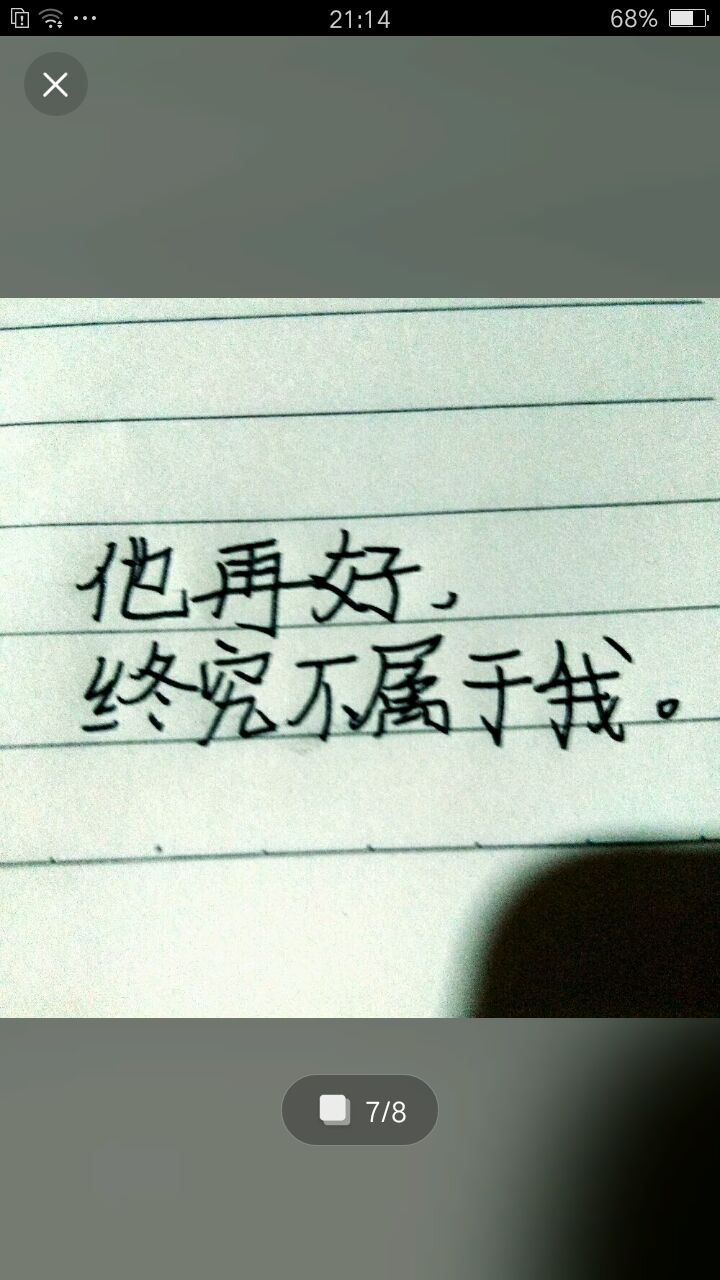 21:14
68%
他再好，
终究不属于我。
7/8